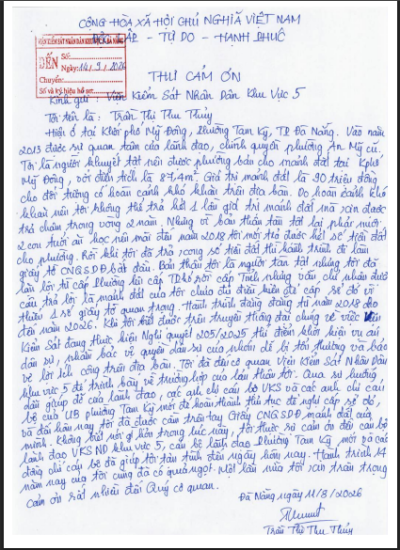 CỘNG HÒA XÃ HỘI CHỦ NGHĨA VIỆT NAM
ĐỘC LẬP - TỰ DO - HẠNH PHÚC
ĐẾN
Số:
Ngày: 14/9/2026
Chuyển:
Số và ký hiệu hồ sơ:
THƯ CẢM ƠN
Kính gửi : Viện Kiểm Sát Nhân Dân Khu Vực 5
Tôi tên là : Trần Thị Thu Thủy
Hiện ở tại Khối phố Mỹ Đông, Phường Tam Kỳ, TP Đà Nẵng. Vào năm
2013 được sự quan tâm của lãnh đạo, chính quyền phường An Mỹ cũ.
Tôi là người khuyết tật nên được phường bán cho mảnh đất tại Kphố
Mỹ Đông, với diện tích là 87,4m². Giá trị mảnh đất là 90 triệu đồng
cho đối tượng có hoàn cảnh khó khăn trên địa bàn. Do hoàn cảnh khó
khăn nên tôi không thể trả hết 1 lần giá trị mảnh đất mà xin được
trả chậm trong vòng 2 năm. Nhưng vì bản thân tàn tật lại phải nuôi
2 con tuổi ăn học nên mãi đến năm 2018 tôi mới trả được hết số tiền đất
cho phường. Rồi khi tôi đã trả xong số tiền đất thì hành trình đi làm
giấy tờ CNQSDĐ bắt đầu. Bản thân tôi là người tàn tật nhưng tôi đã
làm lời từ cấp Phường lên cấp TPhố rồi cấp Tỉnh nhưng vẫn chỉ nhận được
câu trả lời là mảnh đất của tôi chưa đủ điều kiện để cấp sổ đỏ vì
thiếu 1 số giấy tờ quan trọng. Hành trình đằng đẵng từ năm 2018 cho
đến năm 2026. Khi tôi biết được trên truyền thông đài chúng về việc Viện
Kiểm Sát đang thực hiện Nghị quyết 205/2025 thí điểm khởi kiện vụ án
dân sự, nhằm bảo vệ quyền dân sự của nhóm dễ bị tổn thương và bảo
vệ lợi ích công trên địa bàn. Tôi đã đến cơ quan Viện Kiểm Sát Nhân Dân
khu vực 5 để trình bày về trường hợp của bản thân tôi. Qua sự hướng
dẫn giúp đỡ của lãnh đạo, các anh chị cán bộ VKS và các anh chị cán
bộ của UB phường Tam Kỳ mới để hoàn thành thủ tục đề nghị cấp sổ đỏ.
và đến hôm nay tôi đã được cầm trên tay Giấy CNQSDĐ mảnh đất của
mình. Không biết nói gì hơn trong lúc này, tôi thực sự cảm ơn đến cán bộ
lãnh đạo VKSND khu vực 5, cán bộ lãnh đạo Phường Tam Kỳ mới và các
đồng chí cán bộ đã giúp tôi tận tình đến ngày hôm nay. Hành trình 14
năm nay của tôi cũng đã có quả ngọt. Một lần nữa tôi xin trân trọng
cảm ơn rất nhiều đến Quý cơ quan.
Đà Nẵng ngày 11/8/2026
Trần Thị Thu Thủy